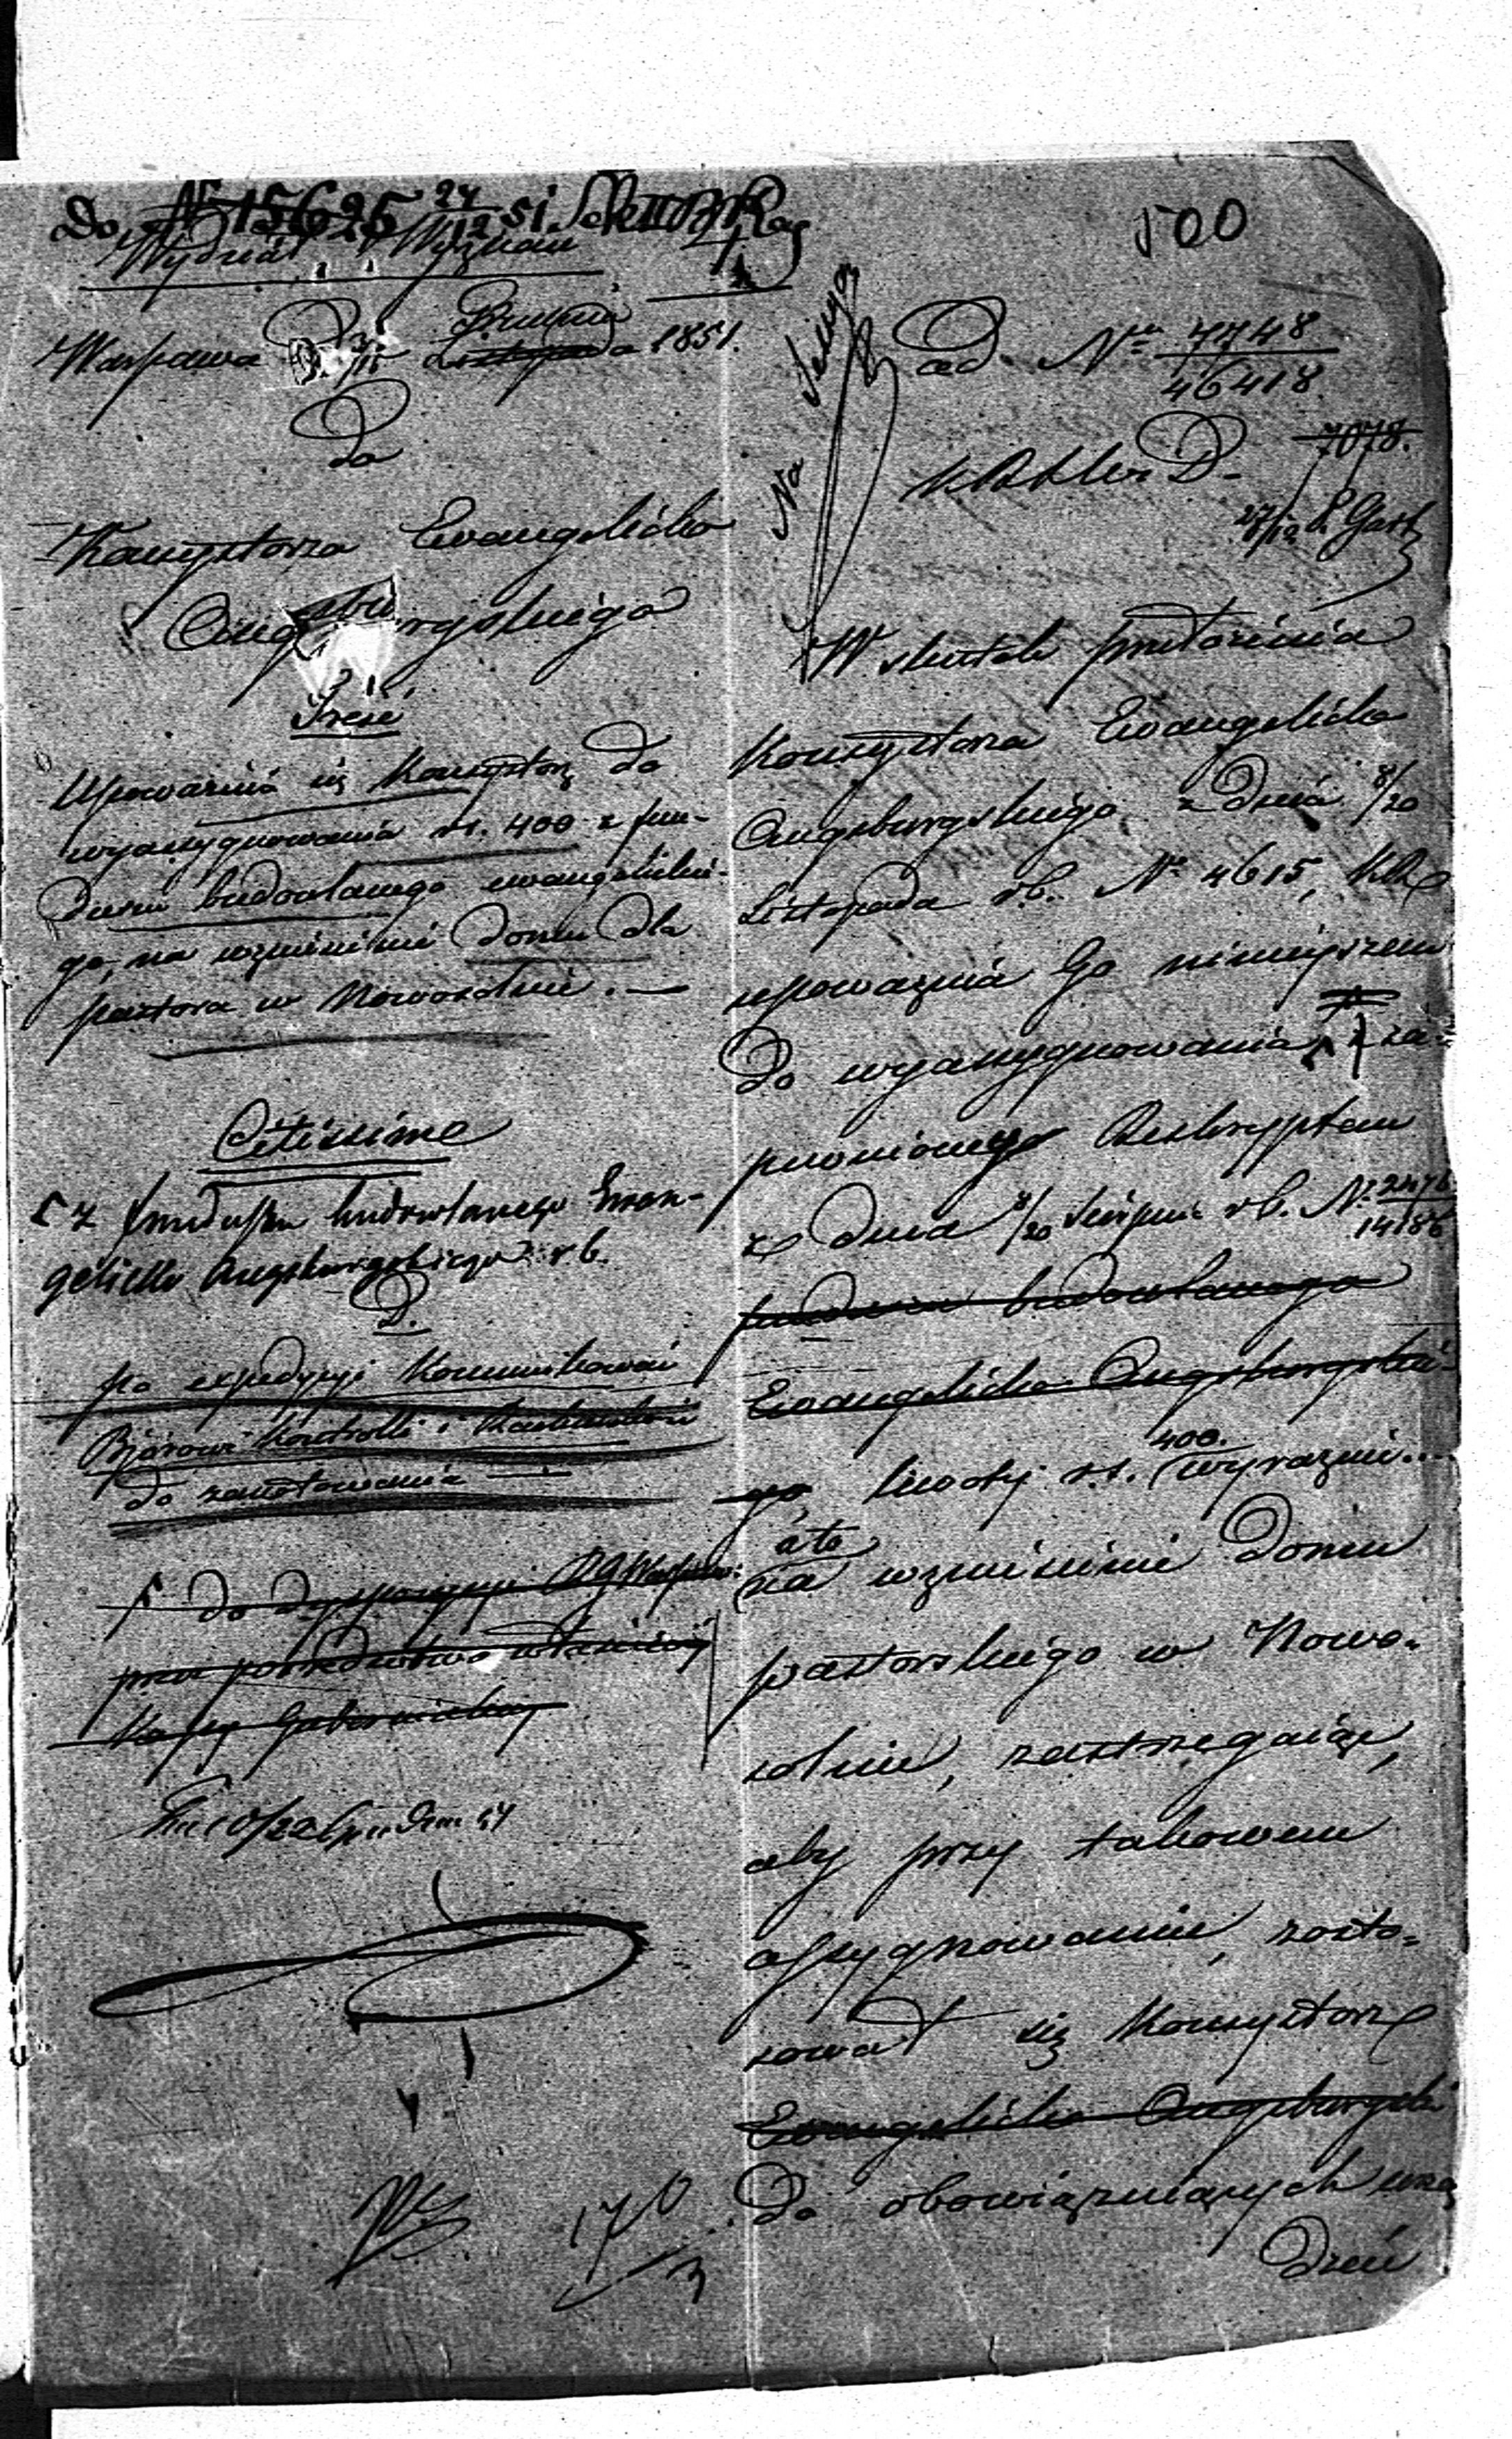 Do N 15625 24/12 51.
Wydział Wyznań
500
Warszawa D. 3/15 Grudnia Listopada 1851.
Do
Konsystorza Ewangelicko
Augsburgskiego
Treść
Upoważnia się Konsystorz do
wyassygnowania rs. 400 z fun-
duszu budowlanego ewangelickie-
go, na wzniesienie domu dla
pastora w Nowosolnie. —
Citissime
z funduszu budowlanego Ewan-
gelicko Augsburgskiego r.b.
D.
po expedycyi kommunikować
Biórowi Kontrolli i
do zanotowania —
do dyspozycyi
przez pośrednictwo właściwej
Kassy Gubernialnej
10/22 Grudnia 51
170
ad. Nr 7748/46418
7078.
W skutek przełożenia
Konsystorza Ewangelicko
Augsburgskiego z dnia 8/20
Listopada r.b. Nr 4615, KR
upoważnia Go niniejszem
do wyassygnowania z za-
pewnionego Reskryptem
z dnia 8/20 Sierpnia r.b. Nr 2476/14186
funduszu budowlanego
Ewangelicko Augsburgskie-
go kwoty rs. 400. wyraźnie...
a to
na wzniesienie domu
pastorskiego w Nowo-
solnie, zastrzegając,
aby przy takowem
assygnowaniu, zasto-
sował się Konsystorz
Ewangelicko Augsburgski
do obowiązujących urzą
dzeń